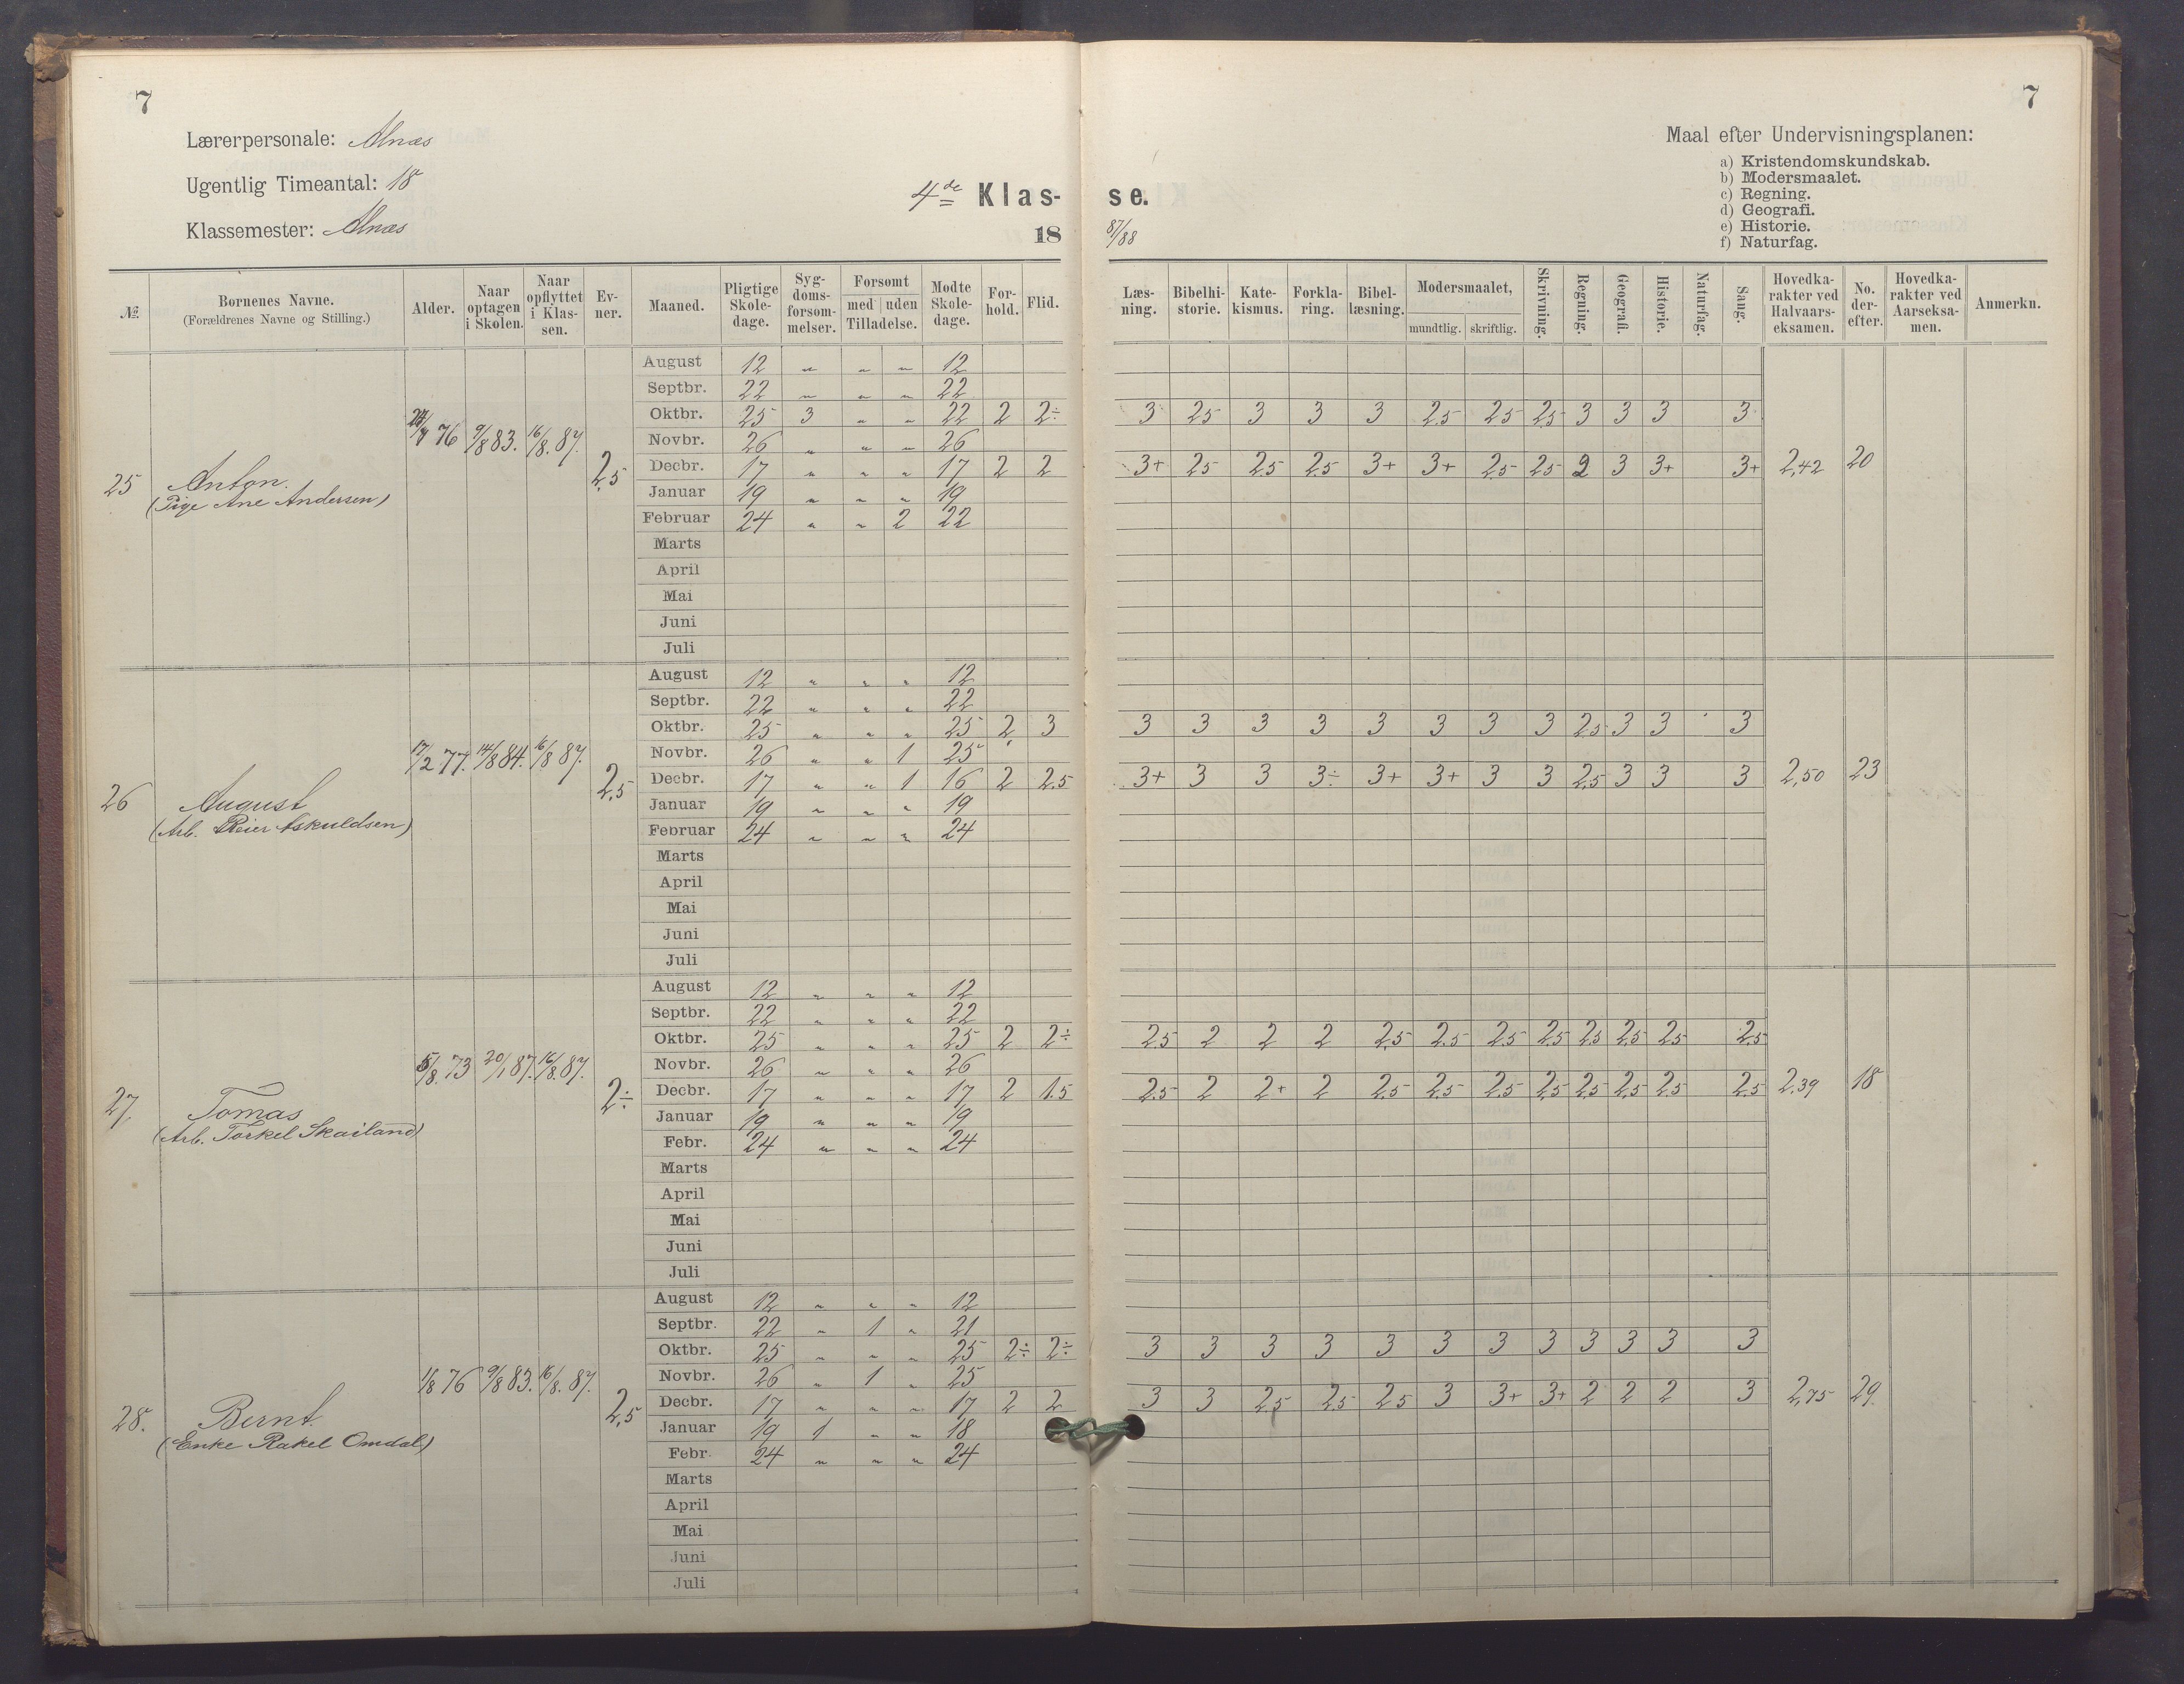 7
7
Lærerpersonale: Alnæs
Ugentlig Timeantal: 18
Klassemester: Alnæs
4de Klas-se.
18 87/88
Maal efter Undervisningsplanen:
a) Kristendomskundskab.
b) Modersmaalet.
c) Regning.
d) Geografi.
e) Historie.
f) Naturfag.
№ | Børnenes Navne. (Forældrenes Navne og Stilling.) | Alder. | Naar optagen i Skolen. | Naar opflyttet i Klassen. | Evner. | Maaned. | Pligtige Skoledage. | Sygdomsforsømmelser. | Forsømt med uden Tilladelse. | Mødte Skoledage. | Forhold. | Flid. | Læsning. | Bibelhistorie. | Katekismus. | Forklaring. | Bibellæsning. | Modersmaalet, mundtlig. skriftlig. | Skrivning. | Regning. | Geografi. | Historie. | Naturfag. | Sang. | Hovedkarakter ved Halvaarseksamen. | No. derefter. | Hovedkarakter ved Aarseksamen. | Anmerkn.
25 Anton. (Pige Ane Andersen) 76 9/8 83. 16/8. 87. 2,5
August 12 " " " 12
Septbr. 22 " " " 22
Oktbr. 25 3 " " 22 2 2÷ 3 2.5 3 3 3 2.5 2.5 2.5 3 3 3 3
Novbr. 26 " " " 26
Decbr. 17 " " " 17 2 2 3+ 2.5 2.5 2.5 3+ 3+ 2.5 2.5 2 3 3+ 3+ 2,42 20
Januar 19 " " " 19
Februar 24 " " 2 22
Marts
April
Mai
Juni
Juli
26 August (Arb. Reier Askuldsen) 17/2 77. 14/8 84. 16/8 87. 2,5
August 12 " " " 12
Septbr. 22 " " " 22
Oktbr. 25 " " " 25 2 3 3 3 3 3 3 3 3 3 2.5 3 3 3
Novbr. 26 " " 1 25
Decbr. 17 " " 1 16 2 2.5 3+ 3 3 3÷ 3+ 3+ 3 3 2.5 3 3 3 2,50 23
Januar 19 " " " 19
Februar 24 " " " 24
Marts
April
Mai
Juni
Juli
27 Tomas (Arb. Torkel Skailand) 5/8. 73 20/1 87. 16/8. 87. 2÷
August 12 " " " 12
Septbr. 22 " " " 22
Oktbr. 25 " " " 25 2 2÷ 2.5 2 2 2 2.5 2.5 2.5 2.5 2.5 2.5 2.5 2.5
Novbr. 26 " " " 26
Decbr. 17 " " " 17 2 1.5 2.5 2 2+ 2 2.5 2.5 2.5 2.5 2.5 2.5 2.5 2.5 2,39 18
Januar 19 " " " 19
Febr. 24 " " " 24
Marts
April
Mai
Juni
Juli
28. Bernt. (Enke Rakel Omdal) 1/8 76 9/8 83. 16/8. 87. 2,5
August 12 " " " 12
Septbr. 22 " 1 " 21
Oktbr. 25 " " " 25 2÷ 2÷ 3 3 3 3 3 3 3 3 3 3 3 3
Novbr. 26 " 1 " 25
Decbr. 17 " " " 17 2 2 3 3 2.5 2.5 2.5 3 3+ 3+ 2 2 2 3 2,75 29.
Januar 19 1 " " 18
Febr. 24 " " " 24
Marts
April
Mai
Juni
Juli